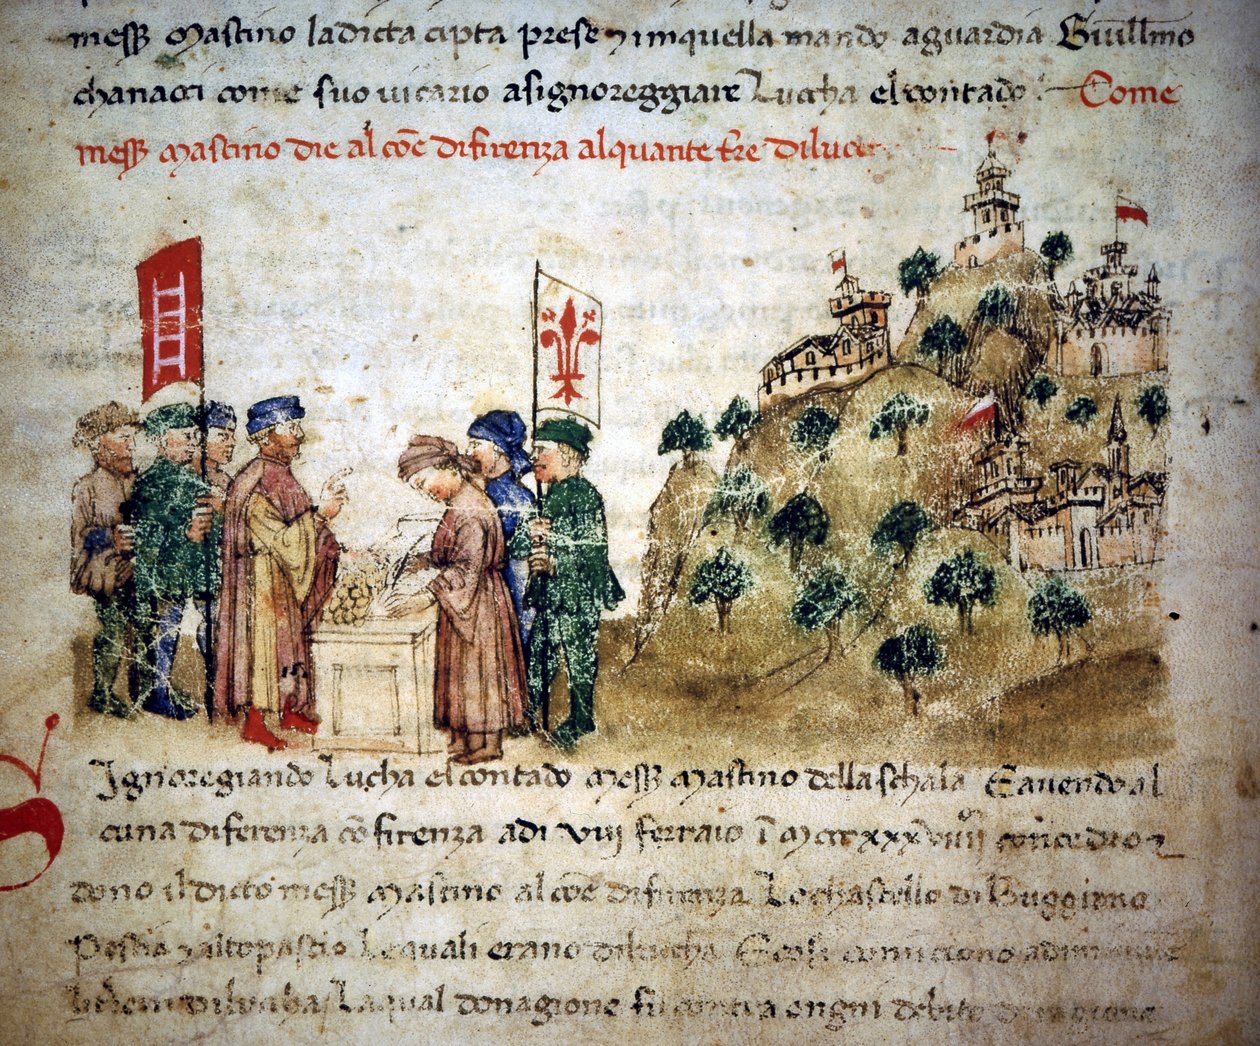 mess Mastino la dicta cipta prese ⁊ inquella mando aguardia Guiullmo
chanacci come suo vicario asignoreggiare Luccha el contado. Come
mess Mastino die al cōe di firenza alquante tr̄e di lucc
Signoregiando Lucha el contado Mess Mastino della schala E avendo al
cuna diferenza cō firenza adi viij ferraio ī Mcccxxxviiij concedeo ⁊
dono il dicto mess Mastino al cōe di firenza Lo chastello di Buggiano
Pescia ⁊ altopascio Le quali erano di lucha E cosi
di lucha La qual donagione fu contra engni debito